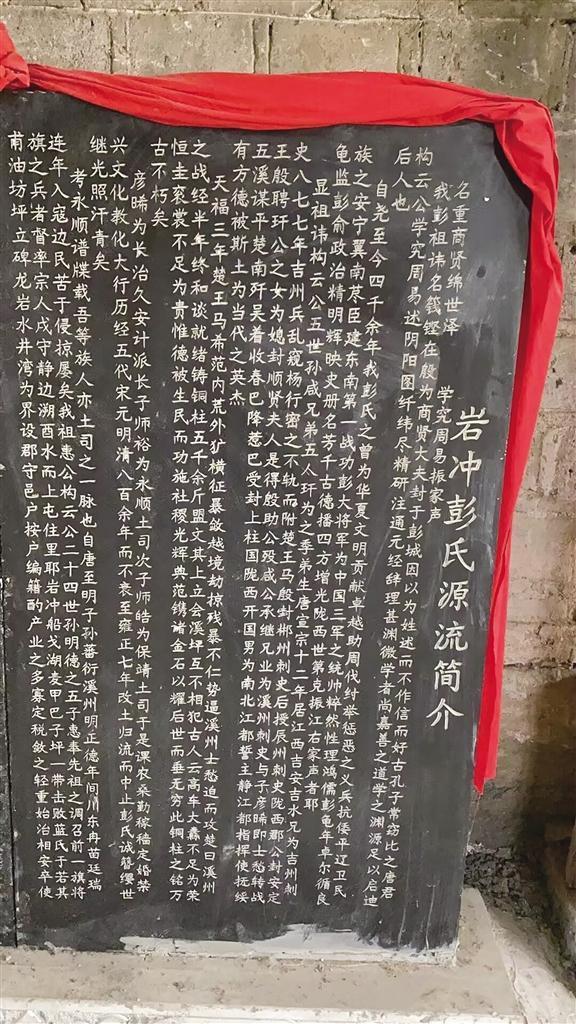 岩冲彭氏源流简介
名重商贤绵世泽 学究周易振家声
我彭祖讳名篯铿在殷为商贤大夫封于彭城因以为姓述而不作信而好古孔子常窃比之唐君
构云公学究周易述阴阳图纤纬尽精研注通元经辞理甚渊微学者尚嘉善之道学之渊源足以启迪
后人也
自尧至今四千余年我彭氏之曾为华夏文明贡献卓越助周伐纣举惩恶之义兵抗倭平辽卫民
族之安宁翼南荩臣建东南第一战功彭大将军为中国三军之统帅粹然性理鸿儒彭龟年卓尔循良
龟监彭俞政治精明辉映史册名芳千古德播四方增光陇西世第克振江右家声者耶
显祖讳构云公五世孙咸兄弟五人环为之季弟生唐宣宗十二年居江西吉安吉水兄为吉州刺
史八七七年吉州兵乱窥杨行密之不轨而附楚王马殷封郴州刺史后授辰州刺史陇西郡公封安定
王殷聘环公之女为媳封顺贤夫人是得殷助公殁咸公承继兄业为溪州刺史与子彦晞即士愁转战
五溪谋平楚南歼吴着收春巴降惹巴受封上柱国陇西开国男为南北江都誓主静江都指挥使抚绥
有方德被斯土为当代之英杰
天福三年楚王马希范内荒外犷横征暴敛越境劫掠残暴不仁势逼溪州士愁迫而攻楚曰溪州
之战经半年终和谈就绪铸铜柱五千余斤盟文其上立会溪坪互不相犯古人云高车大纛不足为荣
恒圭衮裳不足为贵惟德被生民而功施社稷光辉典范镌诸金石以耀后世而垂无穷此铜柱之铭万
古不朽矣
彦晞为长治久安计派长子师裕为永顺土司次子师皓为保靖土司于是课农桑勤稼穑定婚禁
兴文化教化大行历经五代宋元明清八百余年而不衰至雍正七年改土归流而中止彭氏诚簪缨世
继光照汗青矣
考永顺谱牒载吾等族人亦土司之一脉也自唐至明子孙蕃衍溪州明正德年间川东冉苗廷瑞
连年入寇边民苦于侵掠屡矣我祖惠公构云公二十四世孙明德之五子惠奉先祖之调召前一旗将
旗之兵者督率宗人戍守静边溯酉水而上屯住里耶岩冲船戈湖袁甲巴子坪一带击败蓝氏于若其
甫油坊坪立碑龙岩水井湾为界设郡守邑户按户编籍酌产业之多寡定税敛之轻重始治相安卒使